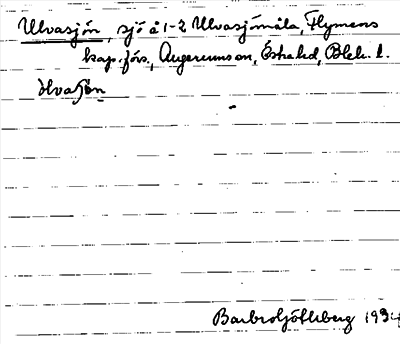 Ulvasjön, sjö å 1-2 Ulvasjömåla, Flymens
kap.förs., Augerumson, Östra hd, Blek. l.
Barbro Söderberg